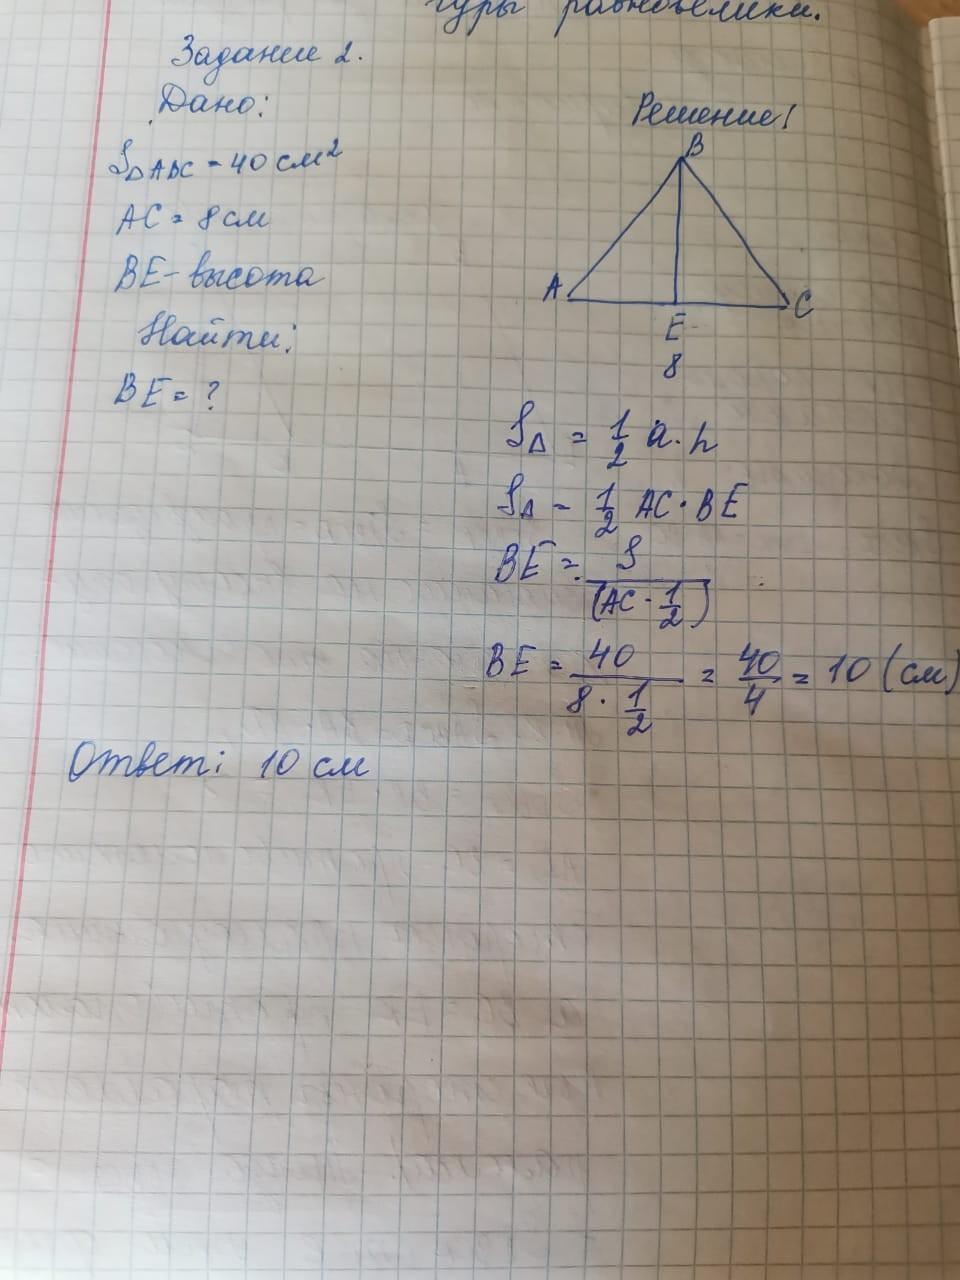 гуры равновелики.
Задание 2.
Дано:
S△ABC = 40 см²
AC = 8 см
BE - высота
Найти:
BE = ?
Решение:
B
A
C
E
8
S△ = 1/2 a · h
S△ = 1/2 AC · BE
BE = S/(AC · 1/2)
BE = 40/(8 · 1/2) = 40/4 = 10 (см)
Ответ: 10 см